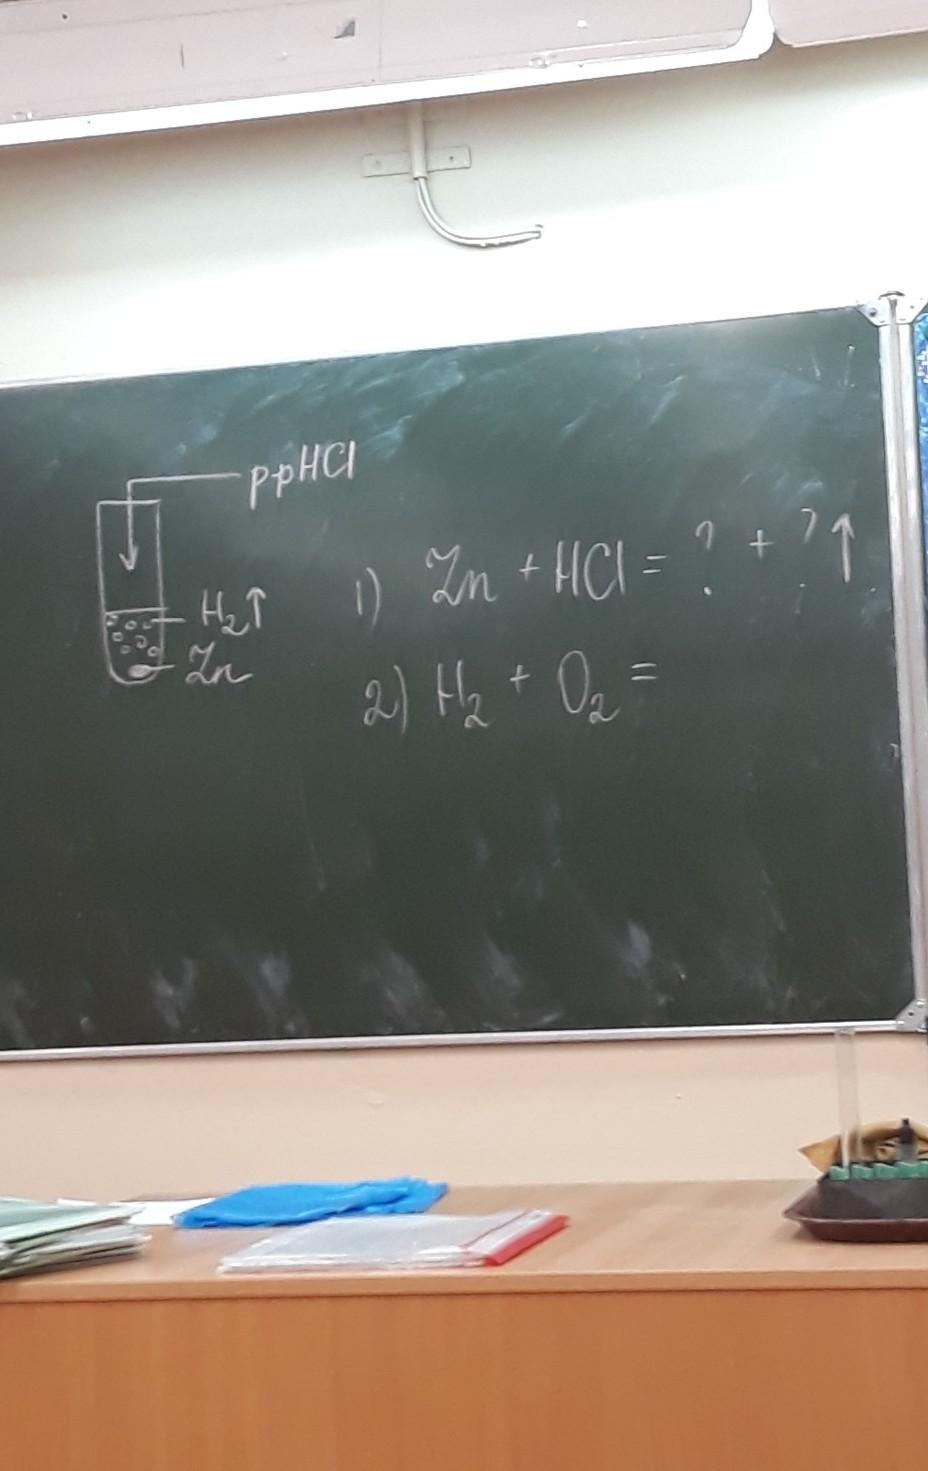 р-р HCl
H₂↑
Zn
1) Zn + HCl = ? + ?↑
2) H₂ + O₂ =